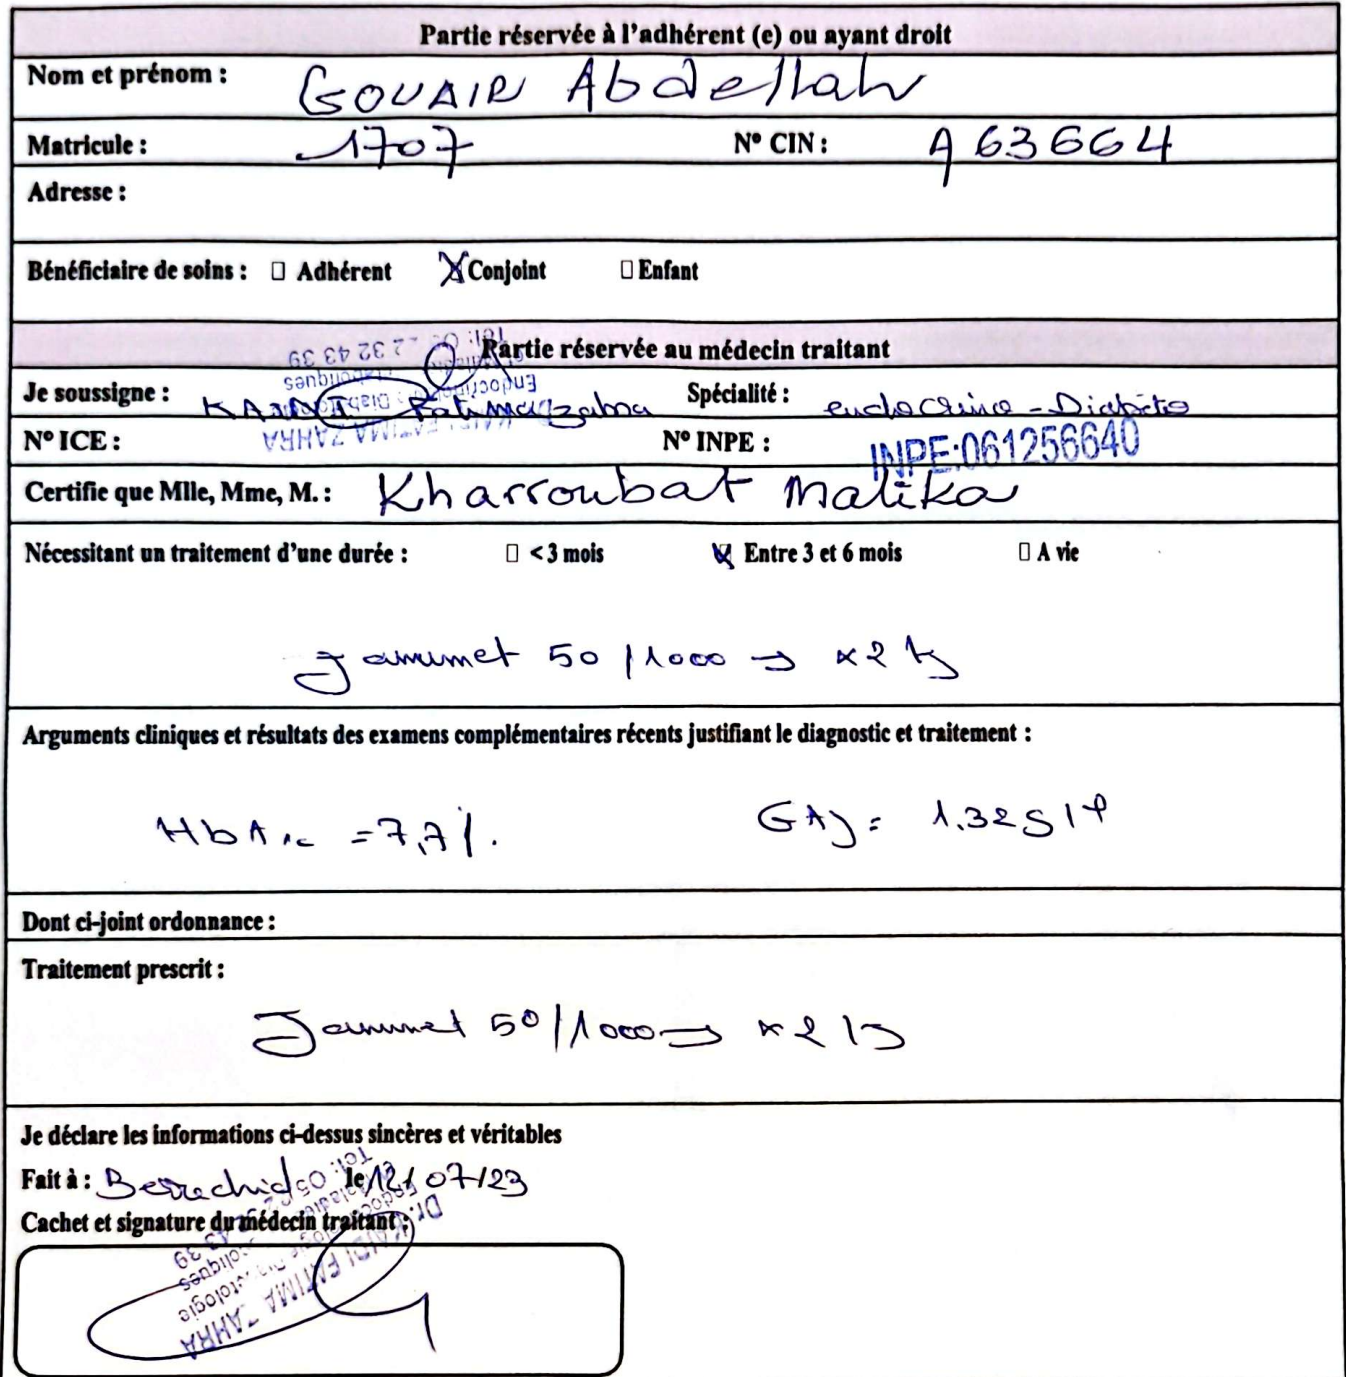 Partie réservée à l'adhérent (e) ou ayant droit
Nom et prénom : GOUAIR Abdellah
Matricule : 1707 N° CIN : A 63664
Adresse :
Bénéficiaire de soins : Adhérent Conjoint Enfant
Partie réservée au médecin traitant
Je soussigne : KAIDI Fatimazahra Spécialité : endocrino - Diabéto
N° ICE : N° INPE : INPE:061256640
Certifie que Mlle, Mme, M. : Kharroubat Malika
Nécessitant un traitement d'une durée : < 3 mois Entre 3 et 6 mois A vie
Janumet 50/1000 → x2/j
Arguments cliniques et résultats des examens complémentaires récents justifiant le diagnostic et traitement :
HbA1c = 7,7%. GAJ = 1.32g/l
Dont ci-joint ordonnance :
Traitement prescrit :
Janumet 50/1000 → x2/j
Je déclare les informations ci-dessus sincères et véritables
Fait à : Berrechid le 12/07/23
Cachet et signature du médecin traitant :
Dr. KAIDI FATIMA ZAHRA